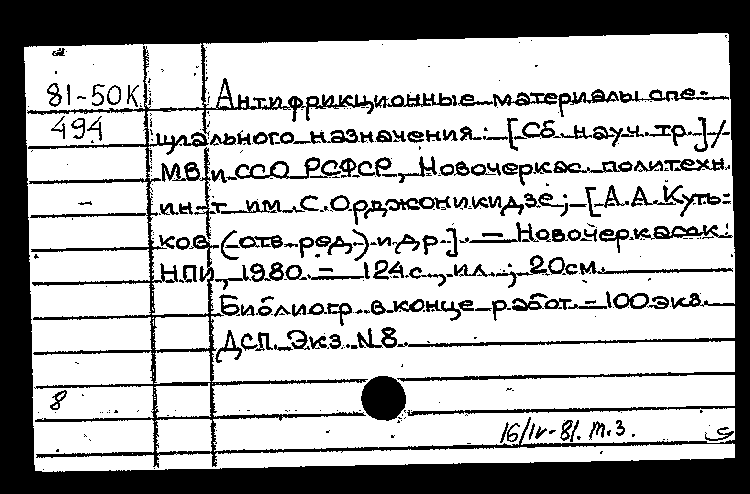 81-50К Антифрикционные материалы спе-
494 циального назначения: [Сб. науч. тр.]/
МВ и ССО РСФСР, Новочеркас. политехн.
- ин-т им. С. Орджоникидзе; [А.А. Куть-
ков (отв. ред.) и др.]. - Новочеркасск:
НПИ, 1980. - 124с., ил.; 20см.
Библиогр. в конце работ. - 100 экз.
ДСП. Экз. N8.
8
16/IV-81. т.3.